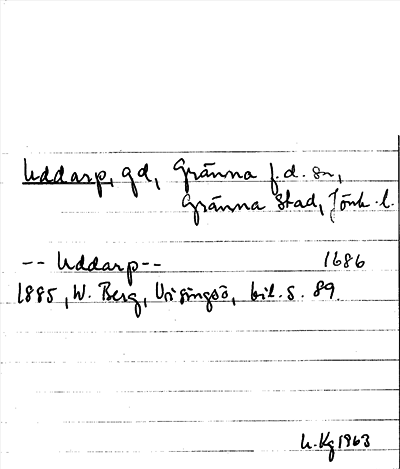 Uddarp, gd, Gränna f.d. sn,
Gränna stad, Jönk. l.
-- Uddarp -- 1686
1885, W. Berg, Visingsö, bil. s. 89.
h.Kg 1963